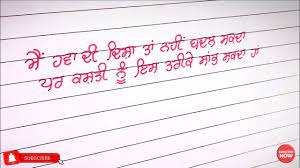 ਮੈਂ ਹਵਾ ਦੀ ਦਿਸ਼ਾ ਤਾਂ ਨਹੀਂ ਬਦਲ ਸਕਦਾ
ਪਰ ਕਸ਼ਤੀ ਨੂੰ ਇਸ ਤਰੀਕੇ ਸਾਂਭ ਸਕਦਾ ਹਾਂ
SUBSCRIBE
SUBSCRIBE NOW